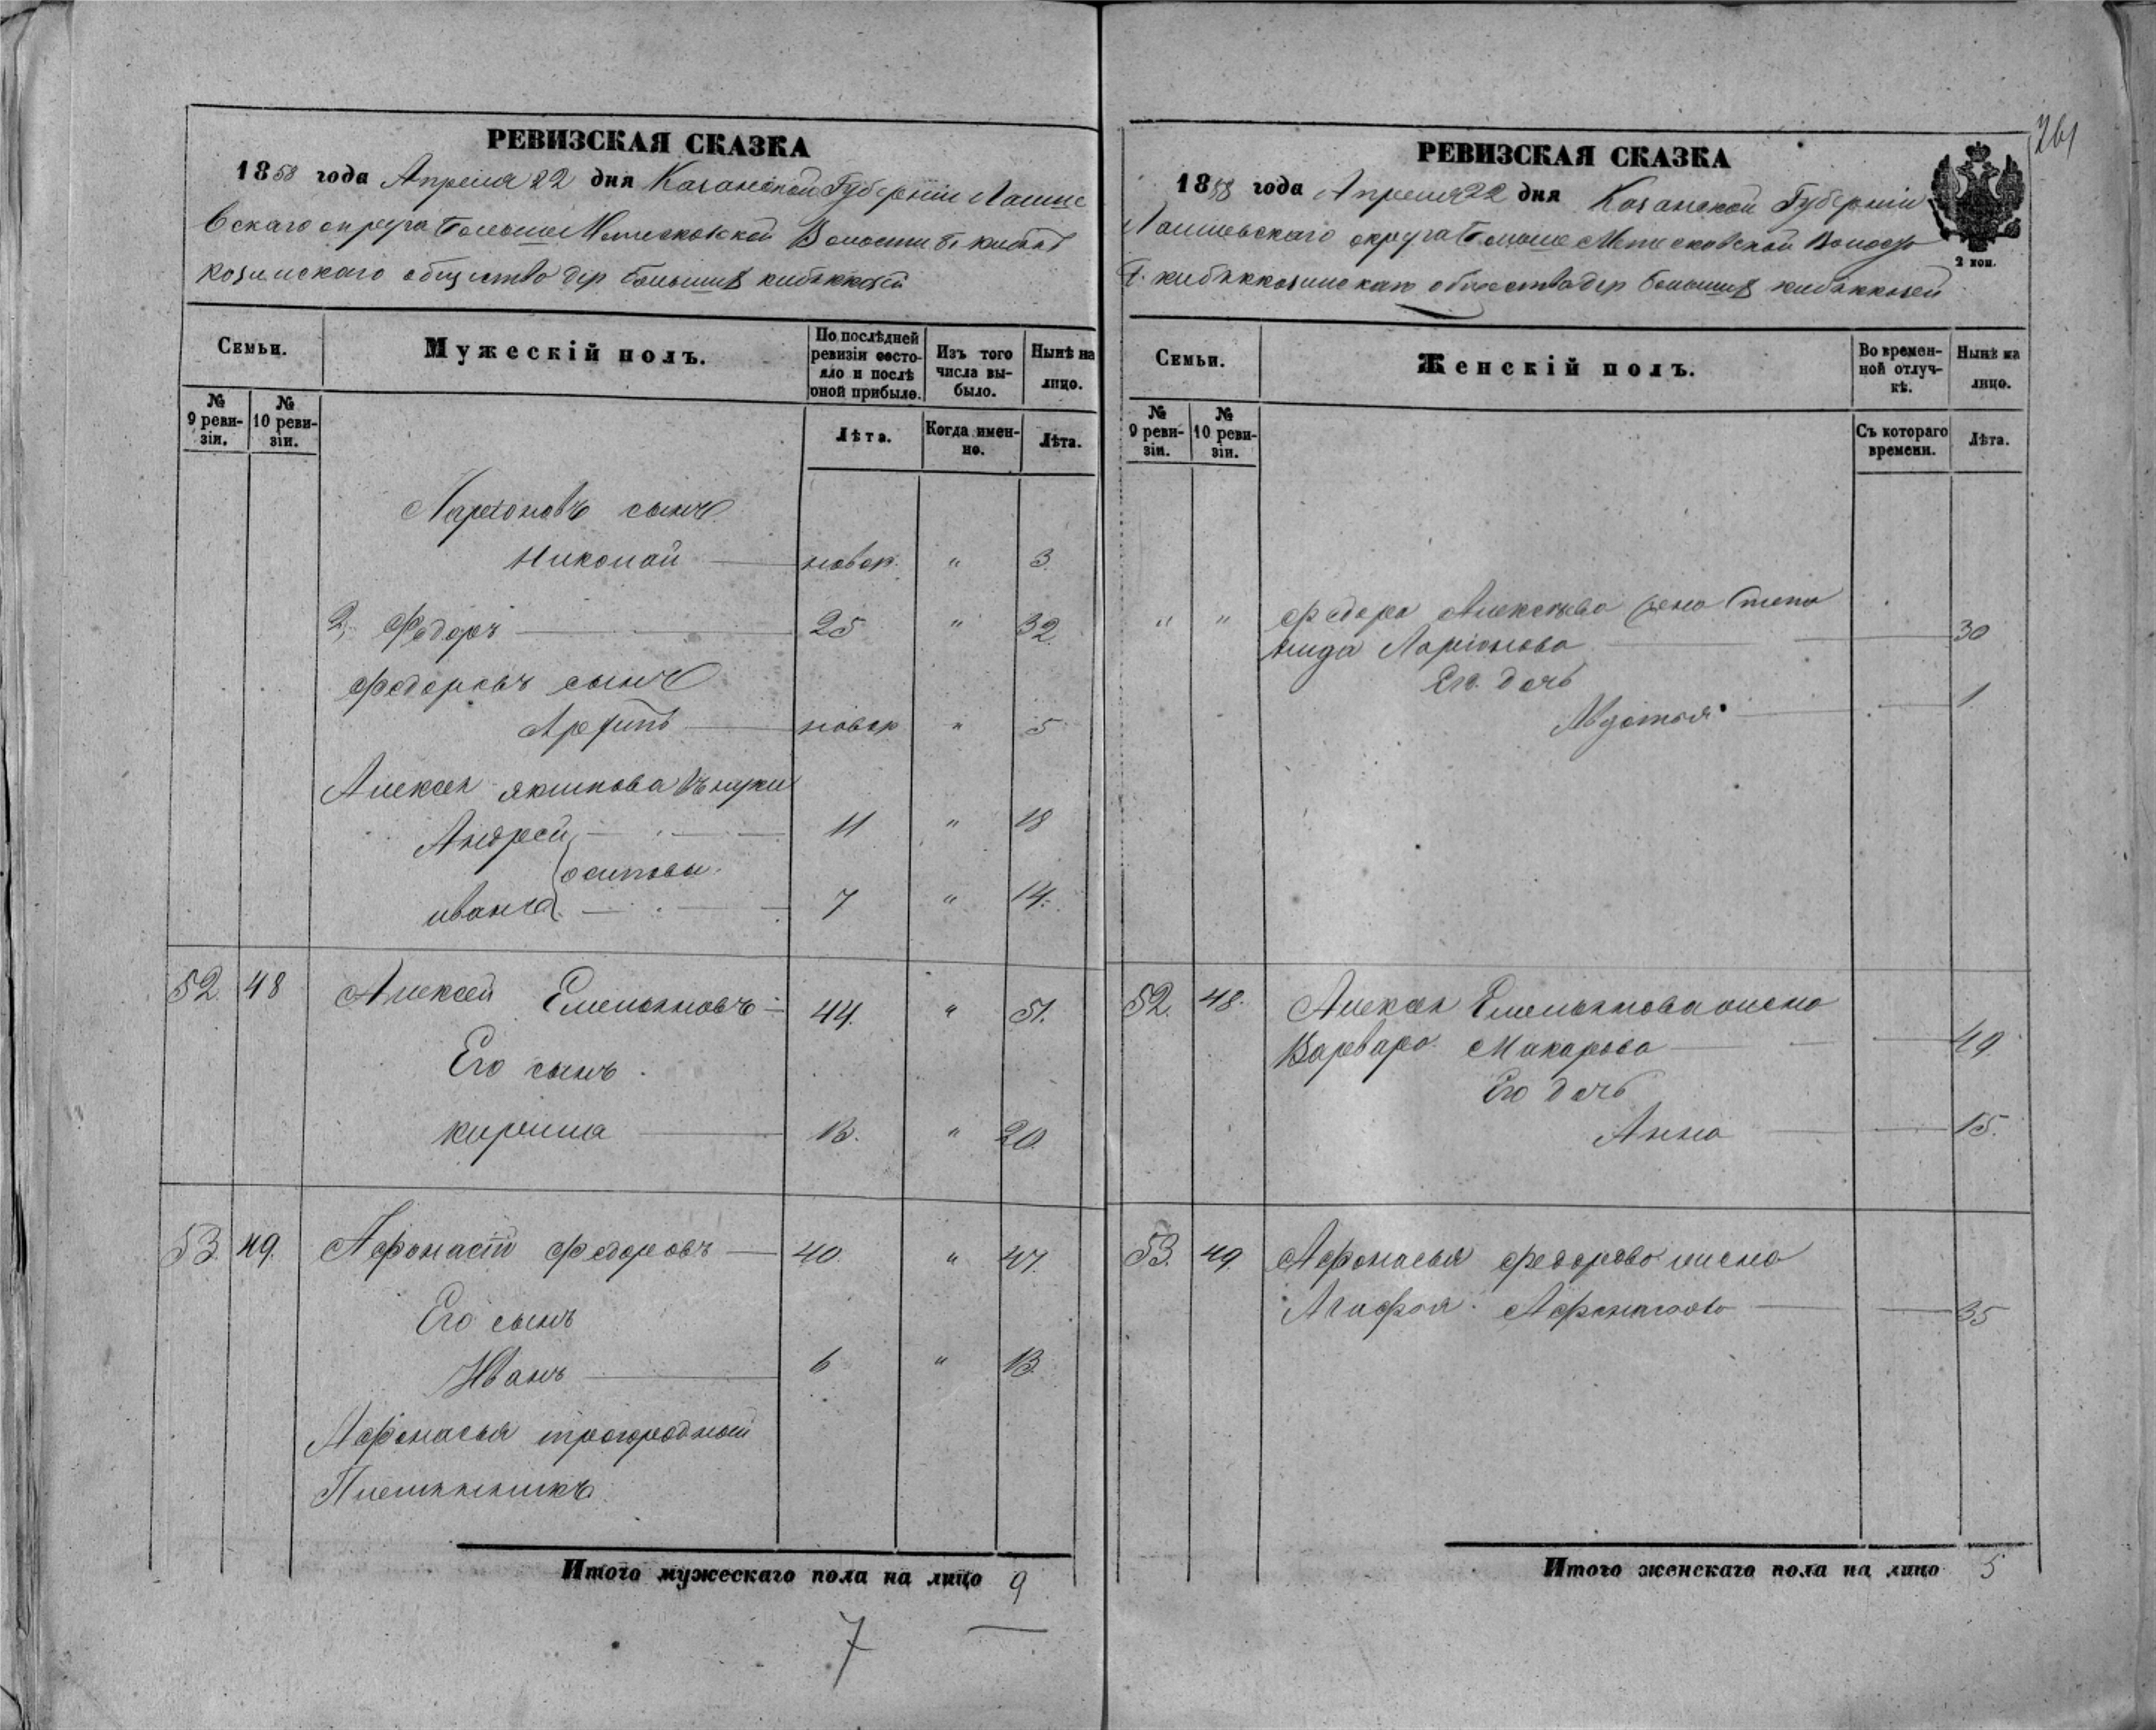 РЕВИЗСКАЯ СКАЗКА
1858 года Апреля 22 дня Казанской Губернiи Лаише
вскаго округа Больше Метесковской Волости Б. кибяк
козинскаго общества дер Большихъ кибякозей
Семьи.
Мужескiй полъ.
По послѣдней ревизiи состо-
яло и послѣ оной прибыло.
Изъ того числа вы-
было.
Нынѣ на лицо.
№ 9 реви-
зiи.
№ 10 реви-
зiи.
Лѣта.
Когда имен-
но.
Лѣта.
Ларiоновъ сынъ
Николай новор. " 3.
2, Федоръ 25 " 32.
Федоровъ сынъ
Архипъ новор " 5
Алексея якимова внуки
Андрей 11 " 18
осиповы.
иванъ 7 " 14.
52. 48 Алексей Емельяновъ 44. " 51.
Его сынъ.
кирила 13. " 20.
53. 49. Афонасiй Федоровъ 40. " 47.
Его сынъ
Иванъ 6 " 13.
Афонасья троюродный
Племянникъ
Итого мужескаго пола на лицо 9
7
261
РЕВИЗСКАЯ СКАЗКА
1858 года Апреля 22 дня Казанской Губернiи
Лаишевскаго округа Больше Метесковской Волос
Б. кибяккозинскаго общества дер Большихъ кибяккозей
2 коп.
Семьи.
Женскiй полъ.
Во времен-
ной отлуч-
кѣ.
Нынѣ на лицо.
№ 9 реви-
зiи.
№ 10 реви-
зiи.
Съ котораго времени.
Лѣта.
" " Федора Алексеева жена Степа
нида Ларiонова 30
Его дочь
Авдотья 1
52. 48. Алексея Емельянова жена
Варвара Макарова 49
Его дочь
Анна 15.
53. 49. Афонасья Федорова жена
Агафья Афонасова 35
Итого женскаго пола на лицо 5